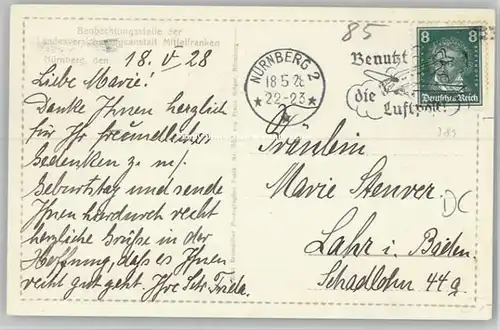 Beobachtungsstelle der
Landesversicherungsanstalt Mittelfranken
Nürnberg, den 18. V. 28
Liebe Marie!
Danke Ihnen herzlich
für Ihr freundliches
Gedenken zu m/.
Geburtstag und sende
Ihnen hierdurch recht
herzliche Grüße in der
Hoffnung, daß es Ihnen
recht gut geht. Ihre Schr. Frieda.
85
NÜRNBERG 2
18.5.28
22-23
Benutzt
die Luftpost!
8 8
Deutsches Reich
Fräulein
Marie Stenver
DC
Lahr i. Baden.
Schadlohn 44a.